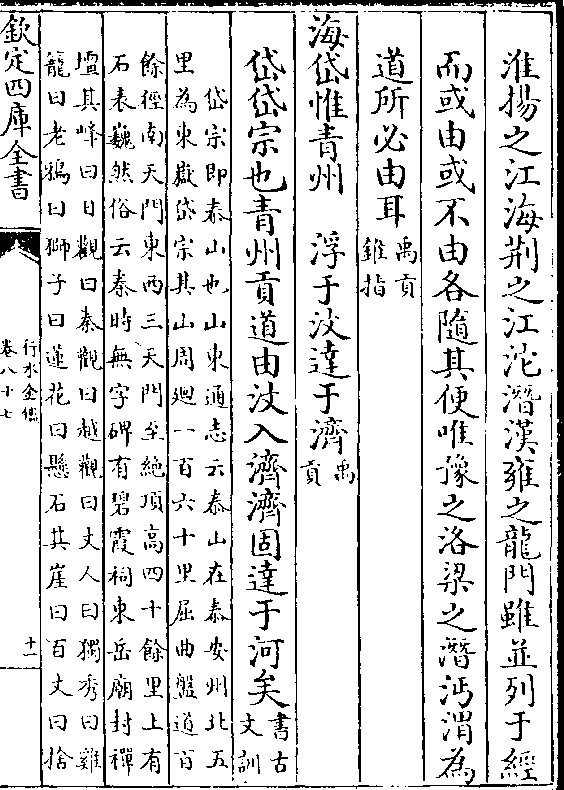 淮揚之江海荆之江沱潛漢雍之龍門雖並列于經
而或由或不由各隨其便唯豫之洛梁之潛沔渭為
道所必由耳禹貢
錐指
海岱惟青州　浮于汶達于濟禹
貢
岱岱宗也青州貢道由汶入濟濟固達于河矣書古
文訓
岱宗即泰山也山東通志云泰山在泰安州北五
里為東嶽岱宗其山周廻一百六十里屈曲盤道百
餘徑南天門東西三天門至絶頂高四十餘里上有
石表巍然俗云秦時無字碑有碧霞祠東岳廟封禪
壇其峰曰日觀曰秦觀曰越觀曰丈人曰獨秀曰雞
籠曰老鴉曰獅子曰蓮花曰懸石其崖曰百丈曰捨
欽定四庫全書
行水金鑑
卷八十七
十一